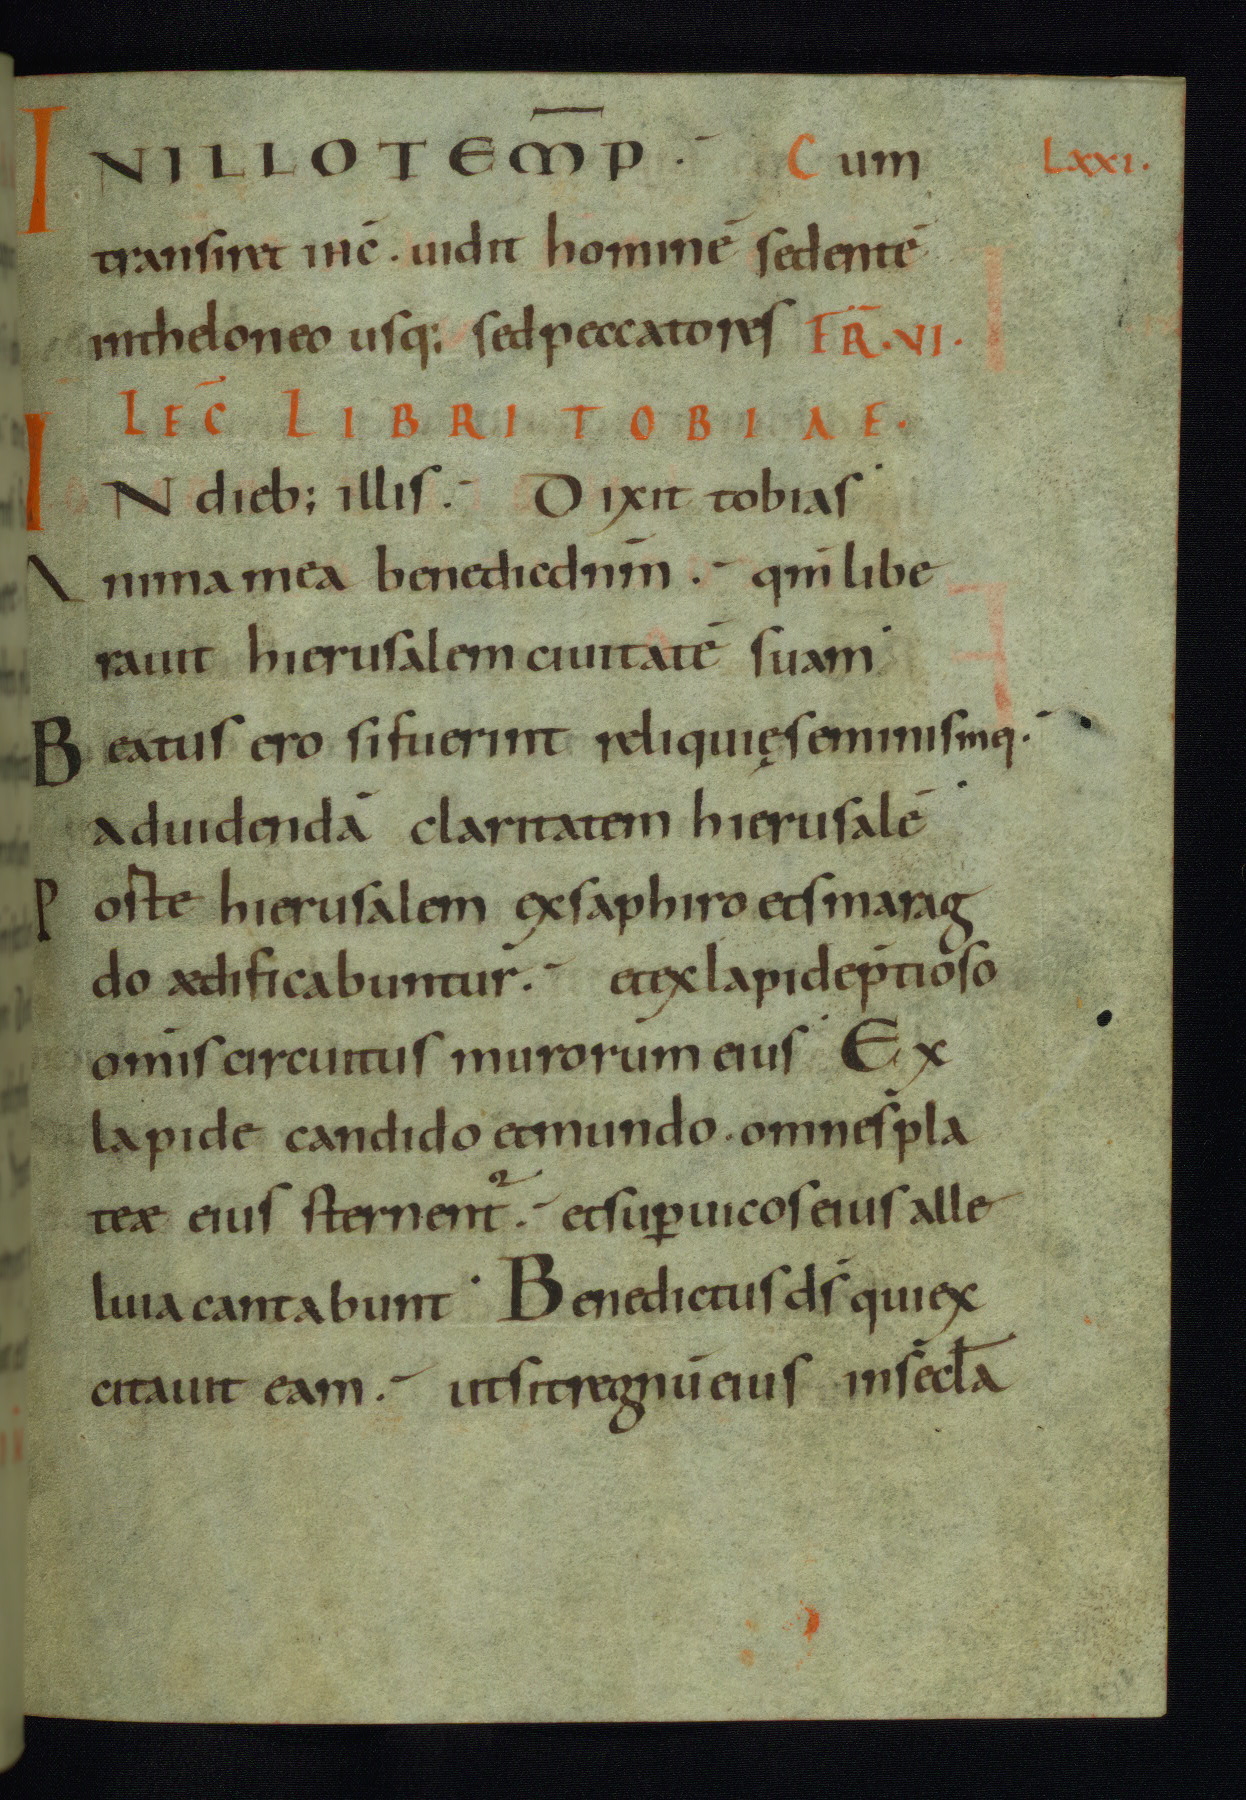 IN ILLO TEMP̅ · Cum LXXI.
transiret ihc̅ . uidit hominē sedentē
intheloneo usq; sed peccatores FR̅ . VI .
LEC̅ LIBRI TOBIAE .
IN dieb; illis . Dixit tobias
Anima mea benedic dnm̅ . qm̅ libe
rauit hierusalem ciuitatē suam
Beatus ero si fuerint reliquię seminis mei
ad uidendā claritatem hierusalē
Portę hierusalem ex saphiro et smarag
do ædificabuntur . et ex lapide p̅tioso
omis̅ circuitus murorum eius Ex
lapide candido et mundo . omnes pla
teæ eius sternent̅ . et sup uicos eius alle
luia cantabunt Benedictus ds̅ qui ex
citauit eam . ut sit regnū eius in secl̅a